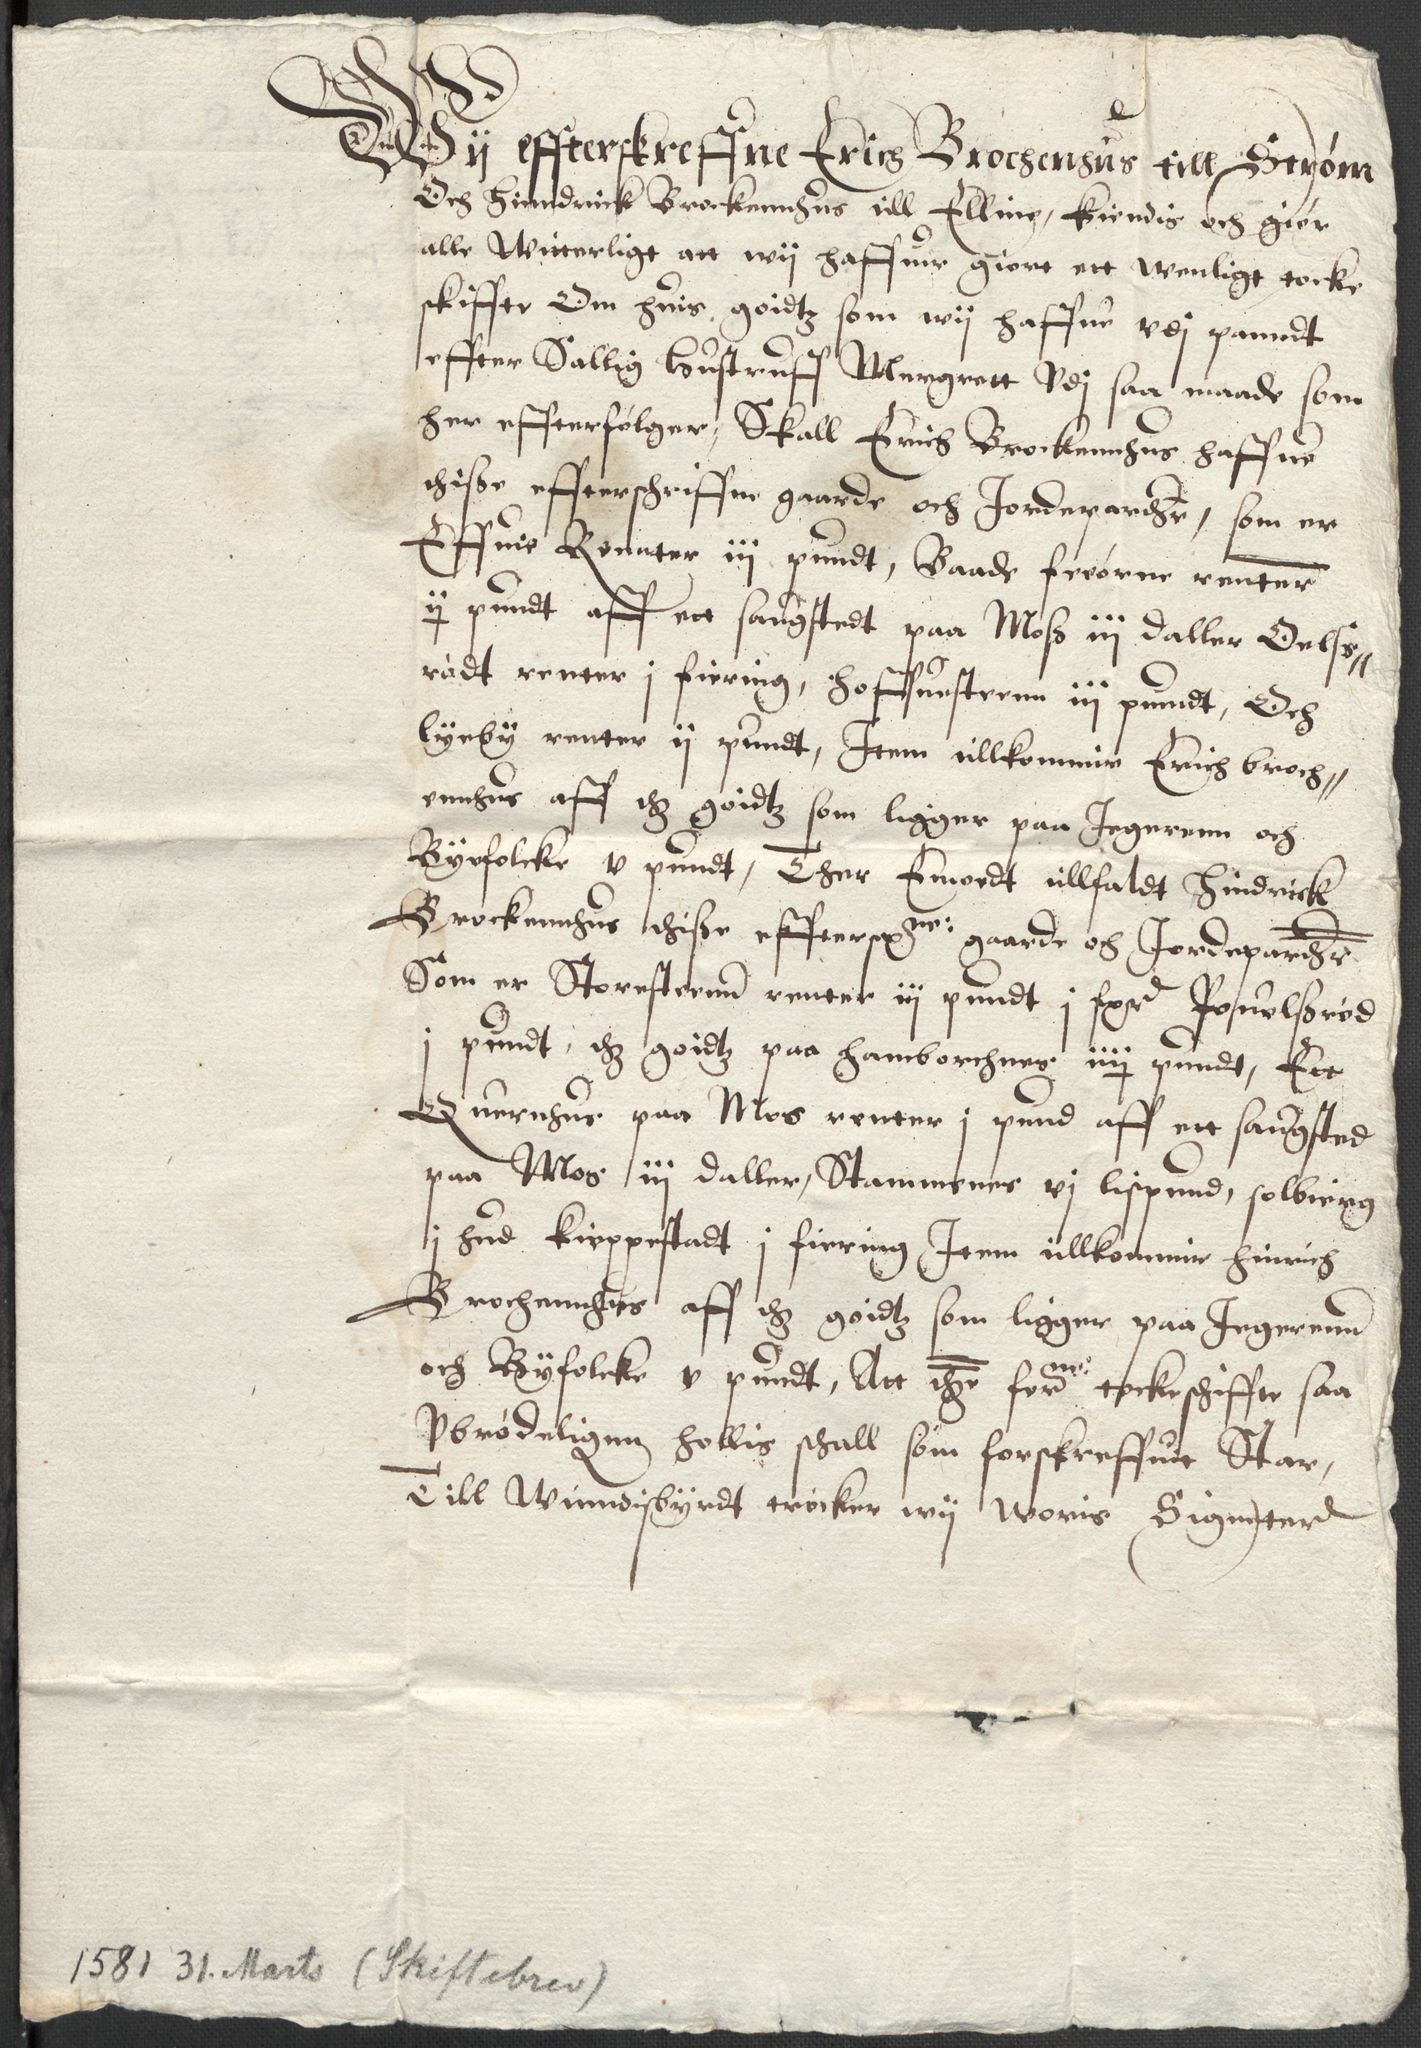 Wij effterskreffne Erich Brochenhus till Strøm
Och Hinndrick Brockennhus till Elline, kiendis och giør
alle Witterligt att wij haffuir giort ett wenligt tocke
skiffte Om huis goidtz som wij haffue vdj pannedt
effter Sallig hustruff Mergrett Vdj saa maade som
her effterfølger, Skall Erich Brockennhus haffue
thisse effterschriffne gaarde och Jordeparther, som er
Effuie Rennter iij pundt, Baade renter
ij pundt aff ett saugstedt paa Moss iij daller Oelss„
rødt renter j fiering, hoffuestenn iij pundt, Och
lyeby renter ij pundt, Item tillkommir Erich broch„
ennhus aff thz goidtz som ligger paa Jegerenn och
Ryefolcke v pundt, Ther Emodt tillfaldt Hindrick
Brockennhus thisse effterschne: gaarde och Jordeparther
Som er Storestenn renter iij pundt j Pouelssrød
j pundt, thz goidtz paa hamborchnes iiij pundt, Ett
Quernhus paa Mos renter j pund aff ett saugsted
paa Mos iij daller, Stammenes vj lispund, solbierg
j hud kieppestadt j fiering Item tillkommir hinrich
Brochennhus aff thz goidtz som ligger paa Jegerenn
och Ryfolcke v pundt, Att thee forne: tockeschiffte saa
Vbrødeligenn hollis schall som forskreffuit Star,
Till Winndisbyrdt trøcker wij woris Signeter
1581 31. Marts (Skiftebrev)